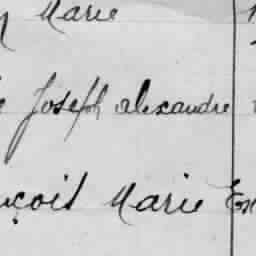 Marie
Joseph alexandre
çois Marie